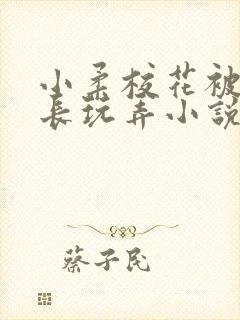 小柔校花被
长玩弄小説
蔡子民